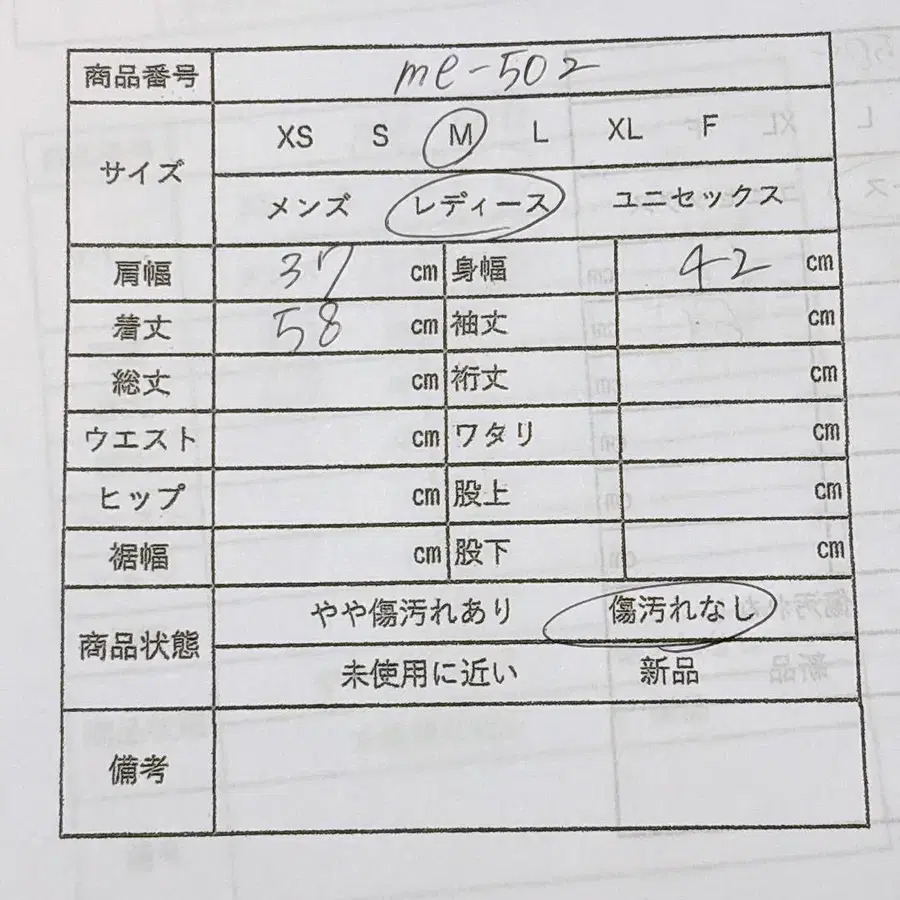 商品番号 me-502
サイズ XS S M L XL F
メンズ レディース ユニセックス
肩幅 37 cm 身幅 42 cm
着丈 58 cm 袖丈 cm
総丈 cm 裄丈 cm
ウエスト cm ワタリ cm
ヒップ cm 股上 cm
裾幅 cm 股下 cm
商品状態 やや傷汚れあり 傷汚れなし
未使用に近い 新品
備考